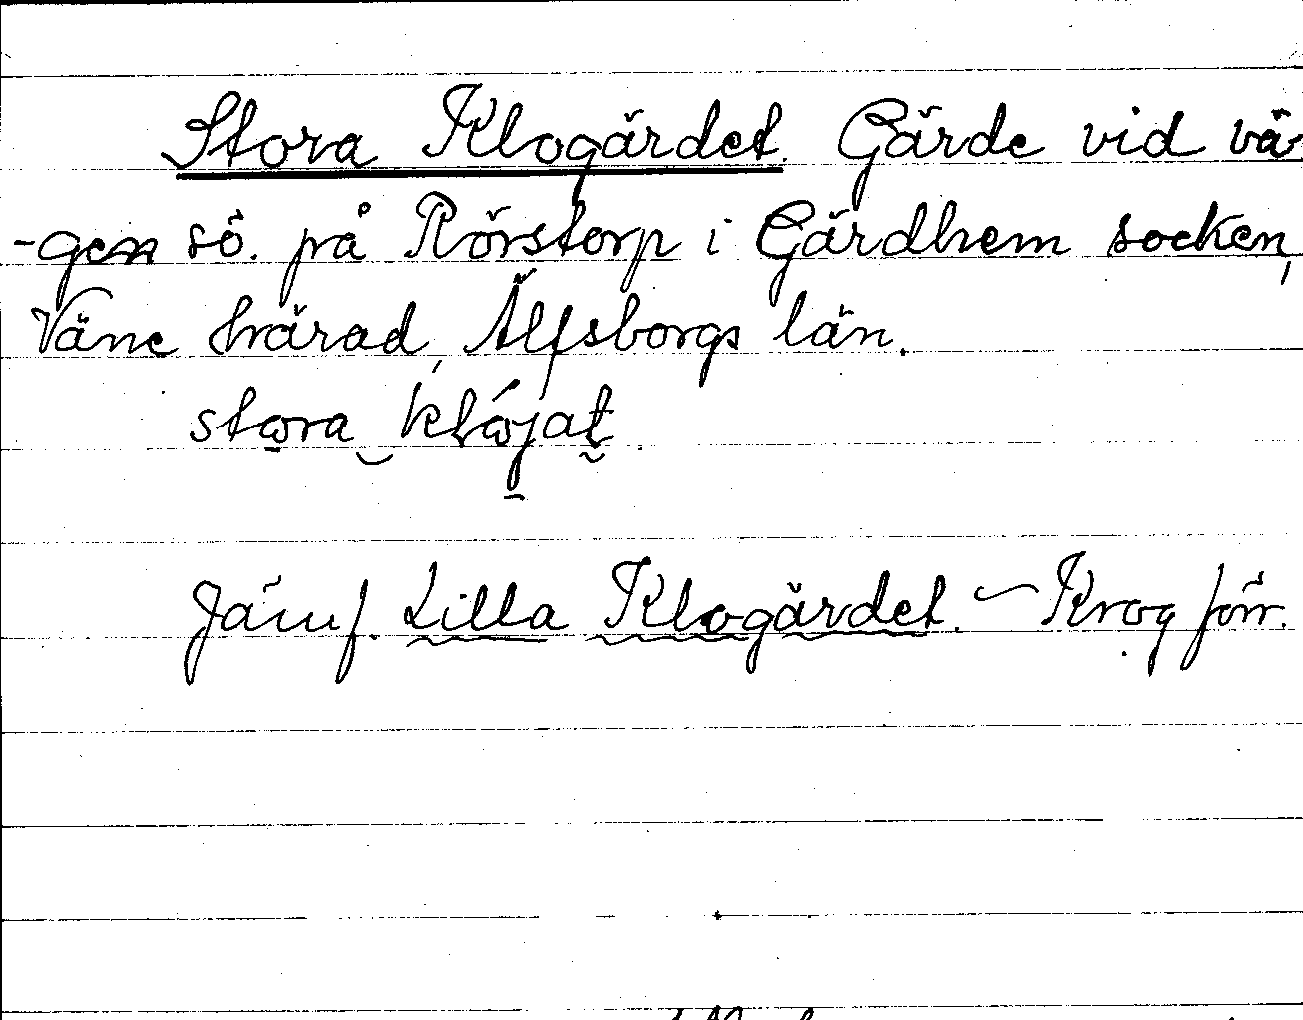 Stora Klogärdet. Gärde vid vä-
-gen sö. på Rörstorp i Gärdhem socken,
Väne härad, Älfsborgs län.
Jämf. Lilla Klogärdet. – Krog förr.